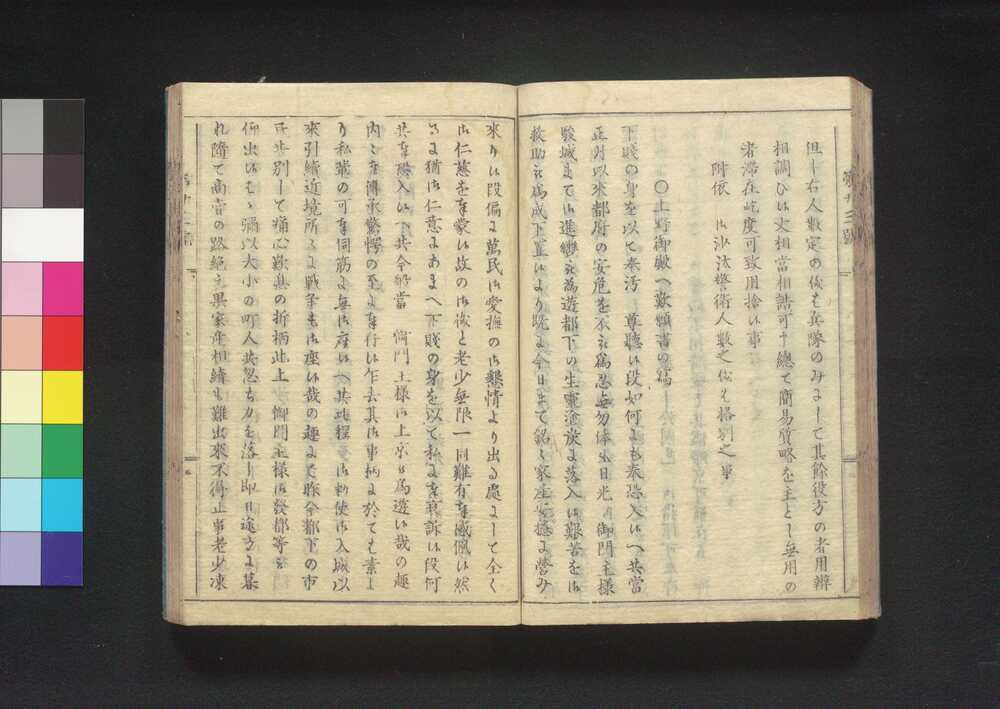 但し右人數定の儀も兵隊のみにして其餘役方の者用辨
相調ひ候丈相當相詰可申總て簡易質略を主とし無用の
者滯在屹度可致用捨候事
附俵 御沙汰警衛人數之儀ハ格別之事
〇上野御廠へ歎願書の寫し
下賤の身を以て奉汚 尊聽候段如何にも奉恐入候へ共當
正月以來都府の安危を不被爲忍無勿体も日光御門主樣
駿城まで御進變被爲遊都下の生靈塗炭に落入候艱苦を御
救助被爲成下置候より既に今日まで銘々家產安穩に營み
來り候段偏に萬民御愛撫の御懇情より出る處にして全く
御仁慈を奉蒙候故の御儀と老少無限一同難有奉感佩候然
るに猶御仁意にあまへ下賤の身を以て私に奉哀訴候段何
共奉恐入候へ共今般當 御門主樣御上京被爲遊候哉の趣
內々奉傳承驚愕の至に奉行候乍去其御事柄に於ても素よ
り私輩の可奉伺筋に無御座候へ共此程御勅使御入城以
來引續近境所々に戰爭も御座候哉の趣にて昨今都下の市
民共別して痛心歎息の折柄此上 御門主樣御發都等被
仰出候はゝ彌以大小の町人共忽ち力を落し即日途方に暮
れ隨て商賣の路絕え果家產相續も難出來不得止事老少凍
第廿三號